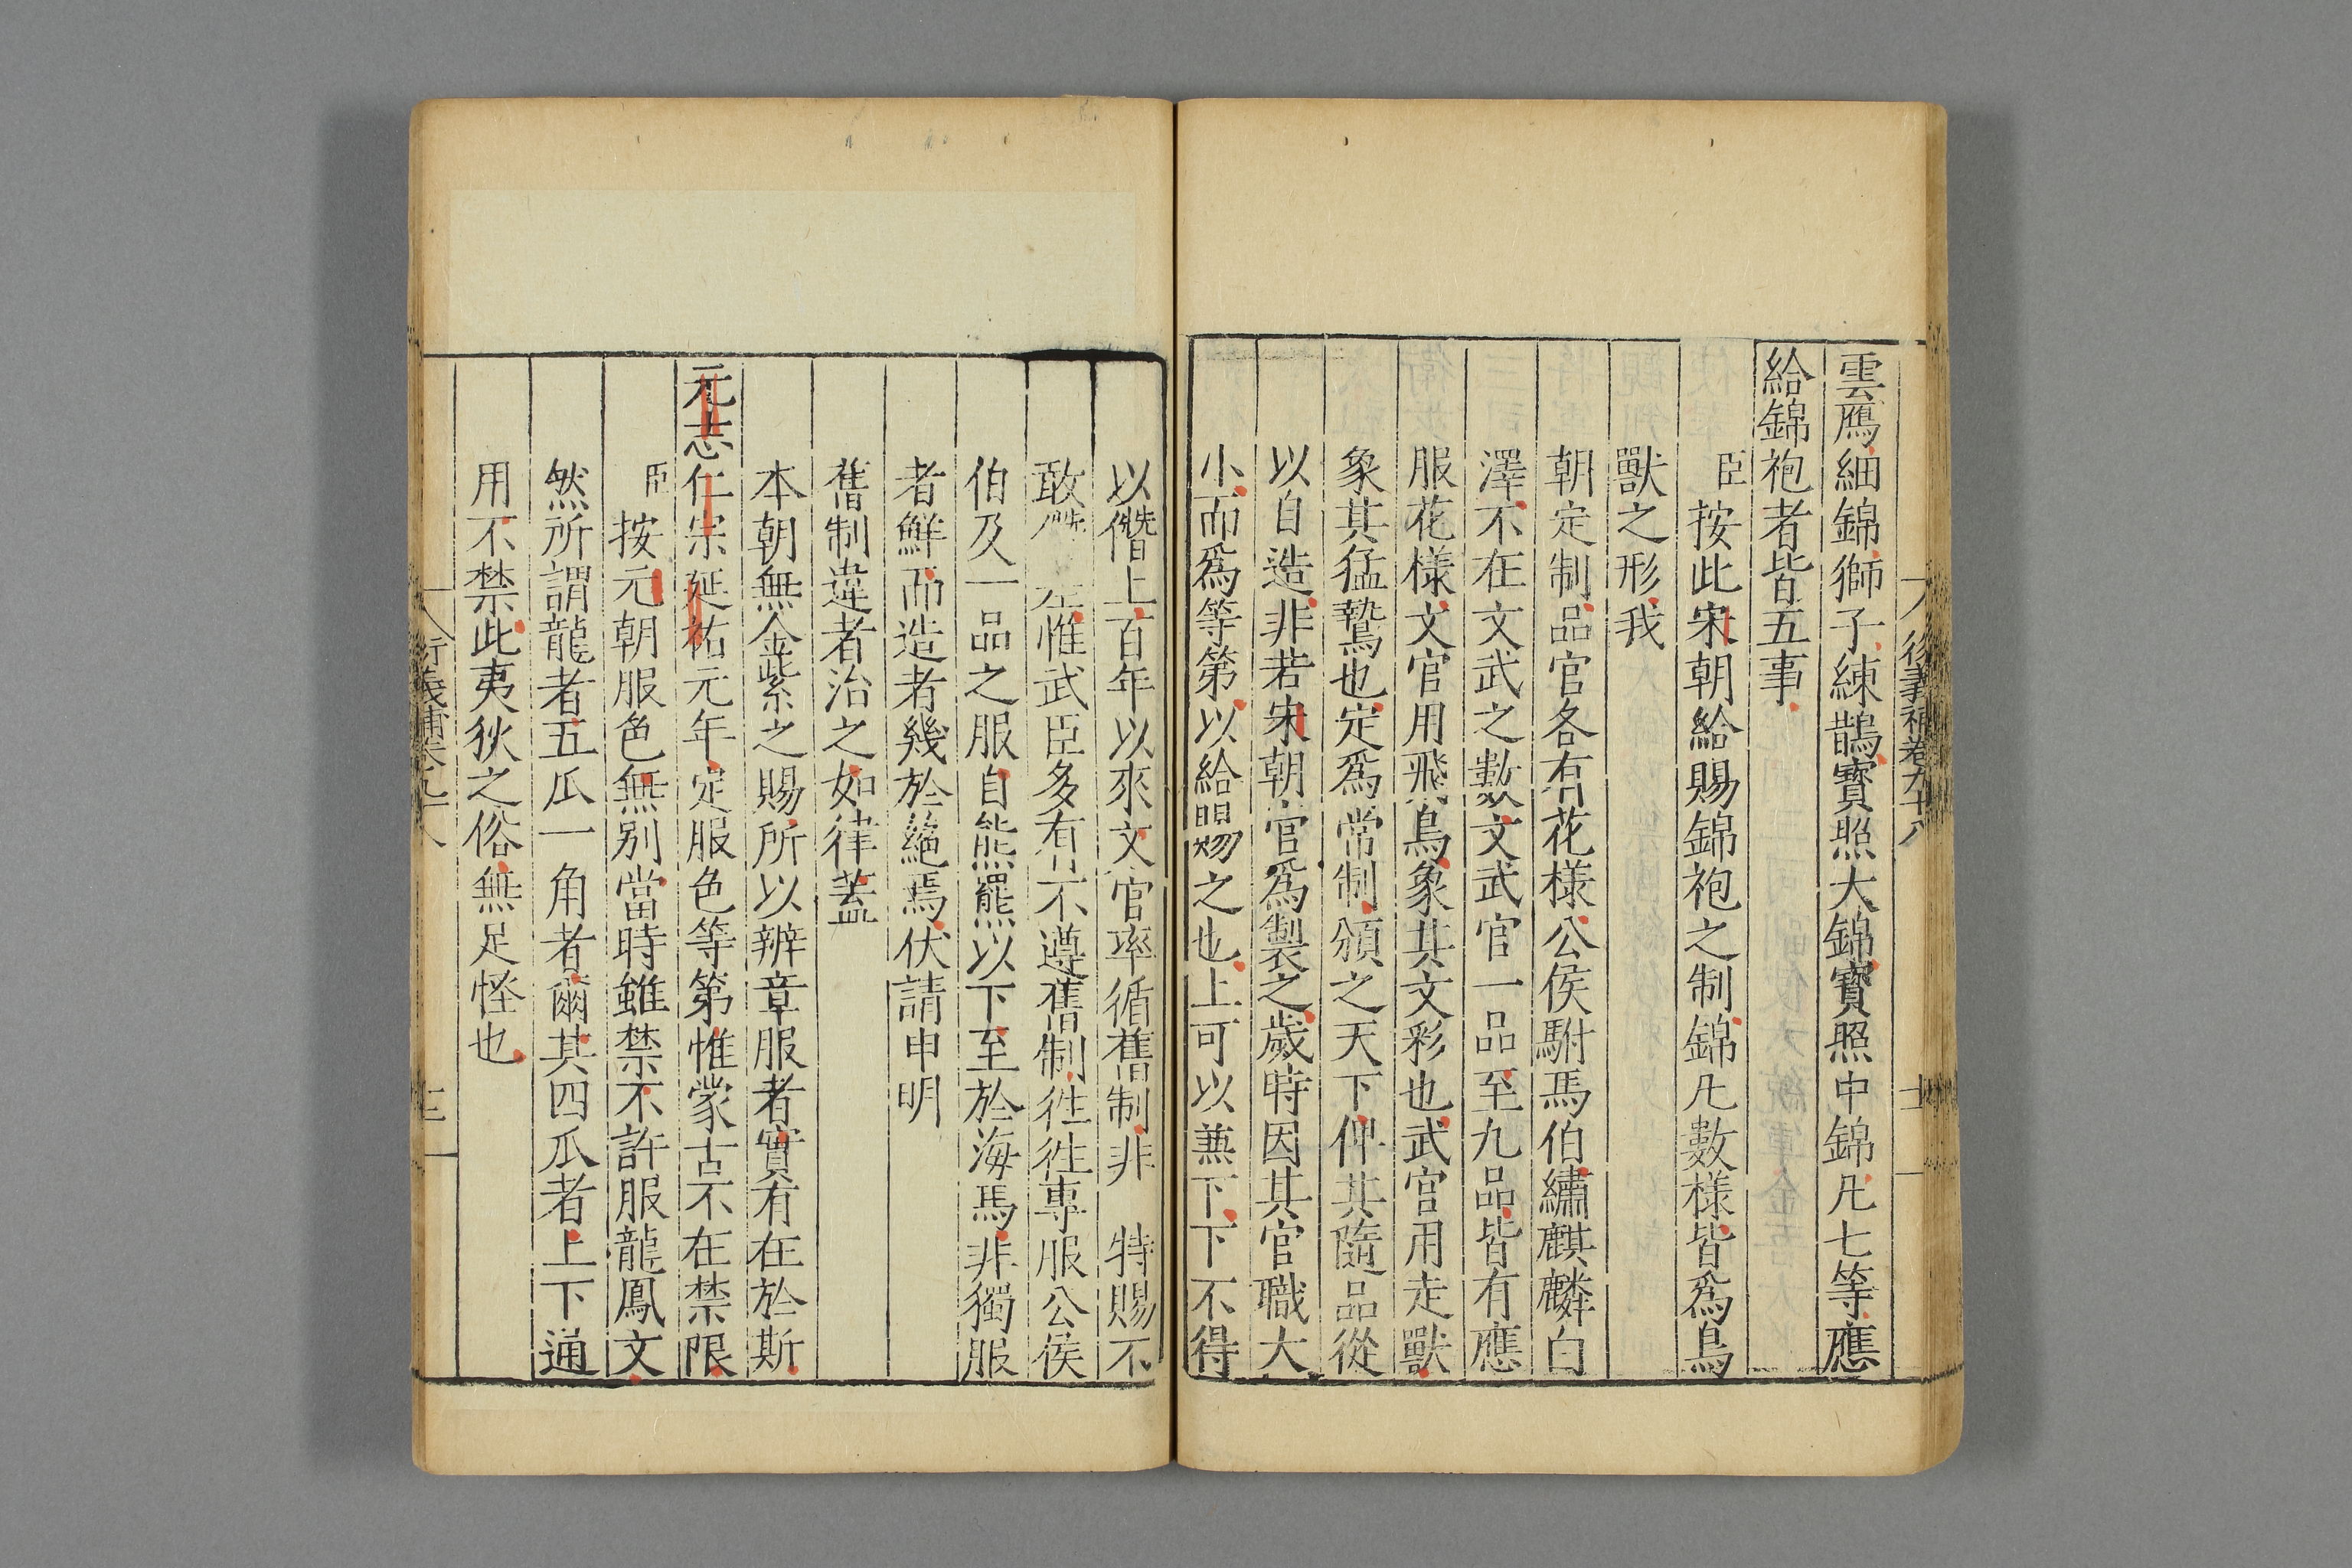 雲鴈細錦獅子練鵲寳照大錦寳照中錦凡七等應
給錦袍者皆五事
臣按此宋朝給賜錦袍之制錦凡數樣皆爲鳥
獸之形我
朝定制品官各有花樣公侯駙馬伯繡麒麟白
澤不在文武之數文武官一品至九品皆有應
服花樣文官用飛鳥象其文彩也武官用走獸
象其猛鷙也定爲常制頒之天下俾其隨品從
以自造非若宋朝官爲製之歲時因其官職大
小而爲等第以給賜之也上可以兼下下不得
以僭上百年以來文官率循舊制非 特賜不
敢僭 惟武臣多有不遵舊制徃徃專服公侯
伯及一品之服自熊羆以下至於海馬非獨服
者鮮而造者幾於絕焉伏請申明
舊制違者治之如律蓋
本朝無金紫之賜所以辨章服者實有在於斯
元志仁宗延祐元年定服色等第惟蒙古不在禁限
臣按元朝服色無别當時雖禁不許服龍鳳文
然所謂龍者五爪一角者爾其四爪者上下通
用不禁此夷狄之俗無足怪也